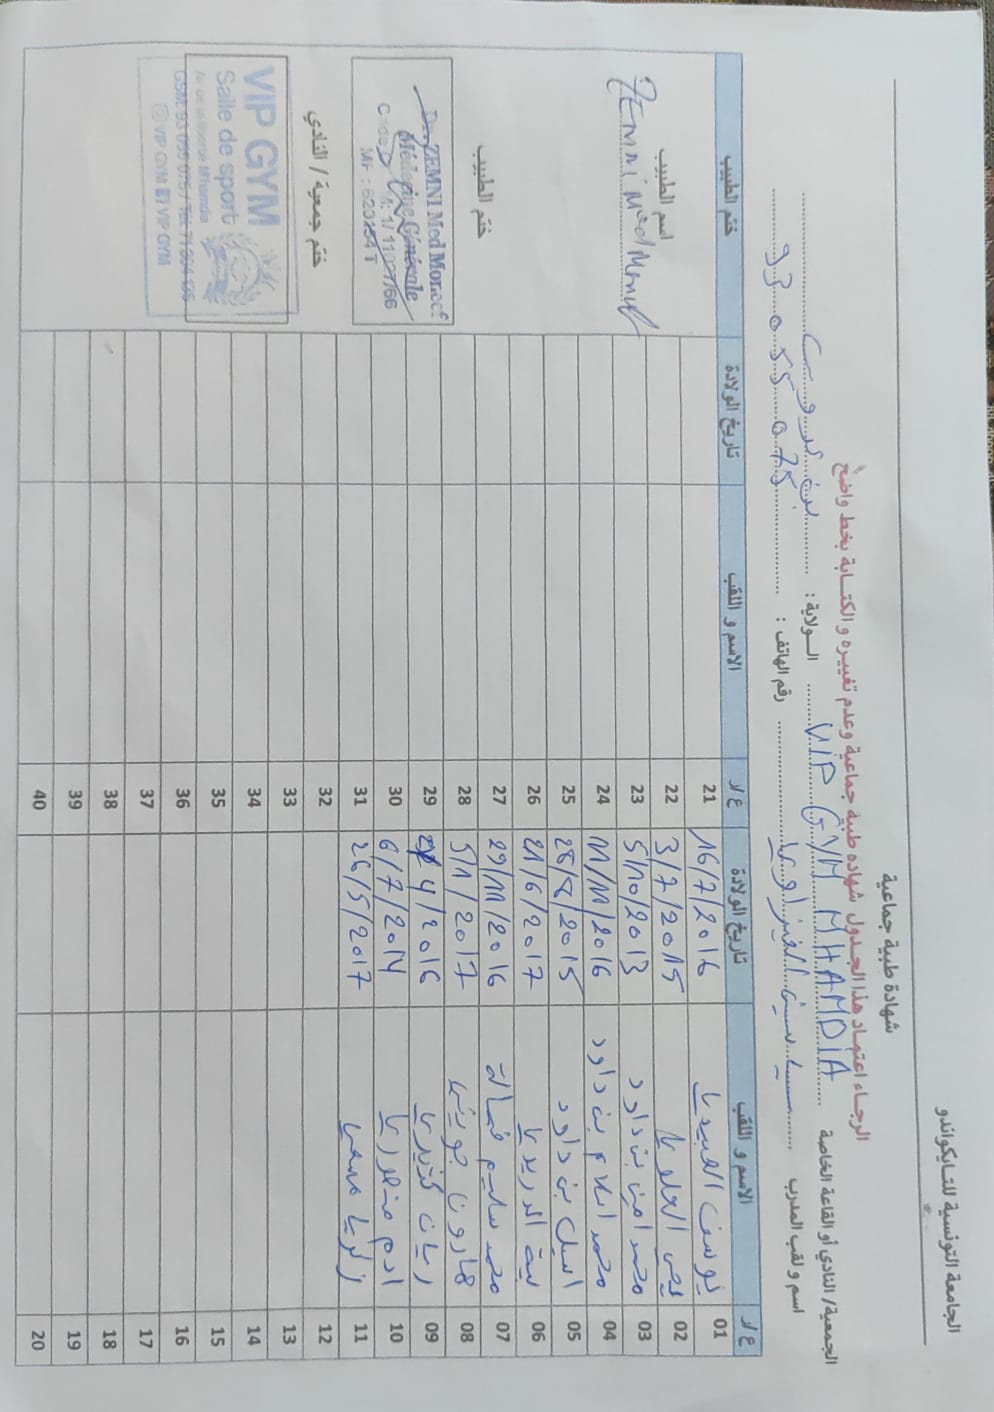 الجامعة التونسية للتايكواندو
شهادة طبية جماعية
الرجاء اعتماد هذا الجدول شهادة طبية جماعية وعدم تغييره والكتابة بخط واضح
الجمعية/ النادي أو القاعة الخاصة VIP GYM MHAMDIA الولاية : بن عروس
اسم و لقب المدرب رقم الهاتف : 93 055 075
ع/ر الاسم و اللقب تاريخ الولادة ع/ر الاسم و اللقب تاريخ الولادة ختم الطبيب
01 يوسف العبيدي 16/7/2016 21
02 يحي العلوي 3/7/2015 22
03 محمد امين بن داود 5/10/2013 23
04 محمد اسلام بن داود 11/11/2016 24
05 اسيل بن داود 2015 25
06 الدريدي 21/6/2017 26
07 محمد سليم 29/11/2016 27
08 هارون جويني 5/1/2017 28
09 ريان 4/2016 29
10 ادم منصوري 6/7/2014 30
11 زكريا 26/5/2017 31
12 32
13 33
14 34
15 35
16 36
17 37
18 38
19 39
20 40
اسم الطبيب
ZEMNI Med Moncef
ختم الطبيب
Dr. ZEMNI Med Moncef
Médecine Générale
ختم جمعية / النادي
VIP GYM
Salle de sport
GSM: 93 055 075 / Tél:
VIP GYM VIP GYM